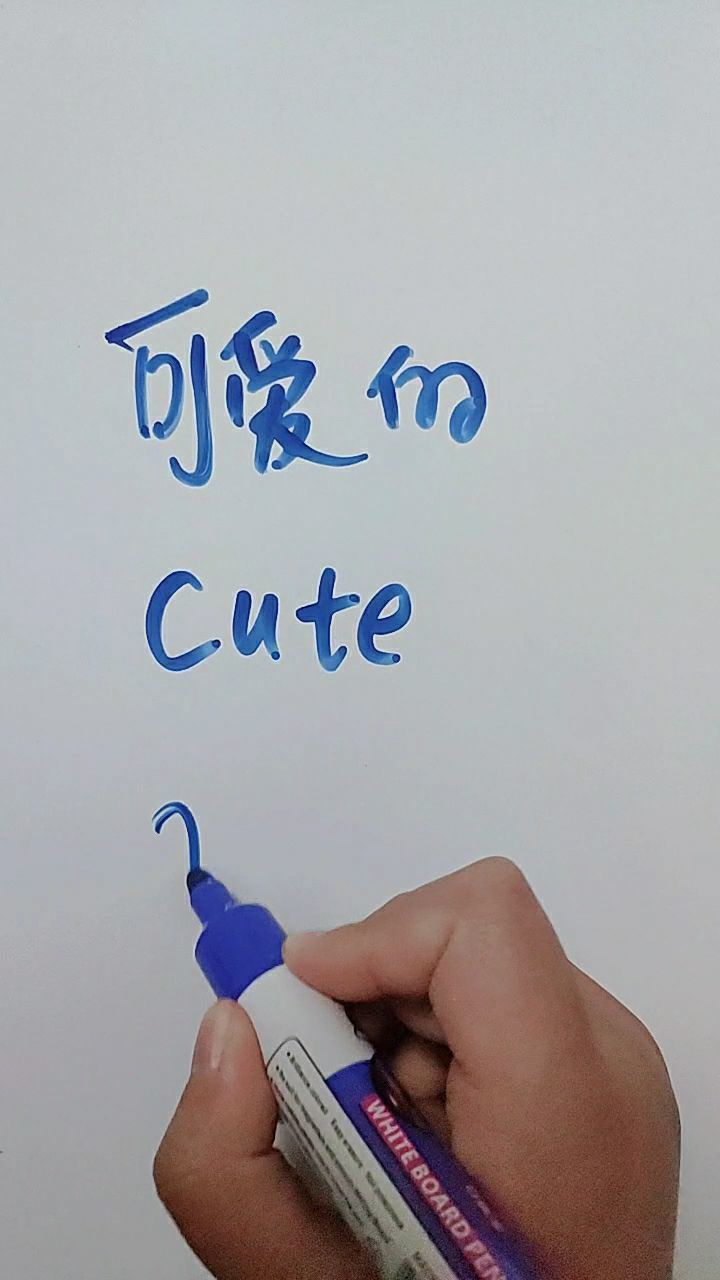 可爱的
Cute
WHITE BOARD PEN